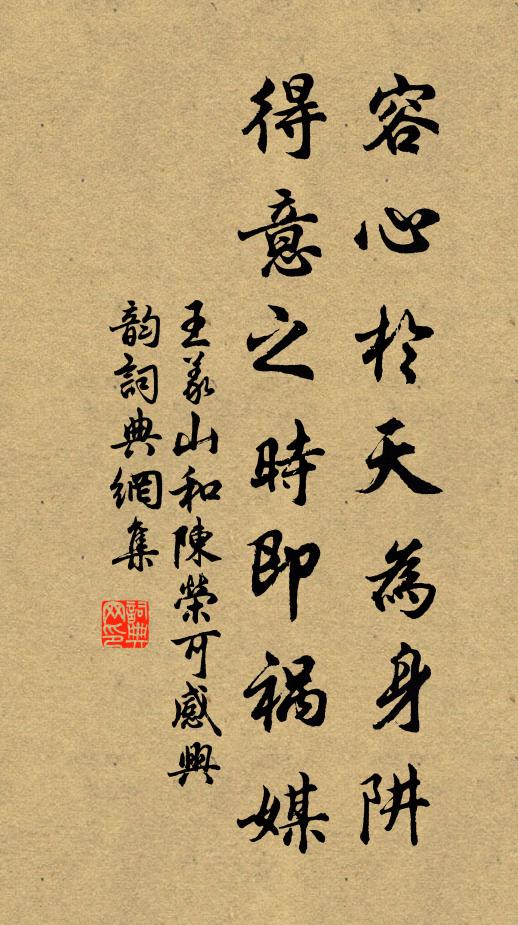 容心於天為身阱
得意之時即禍媒
王義山和陳榮可感興
韵詞典網集
詞典網印